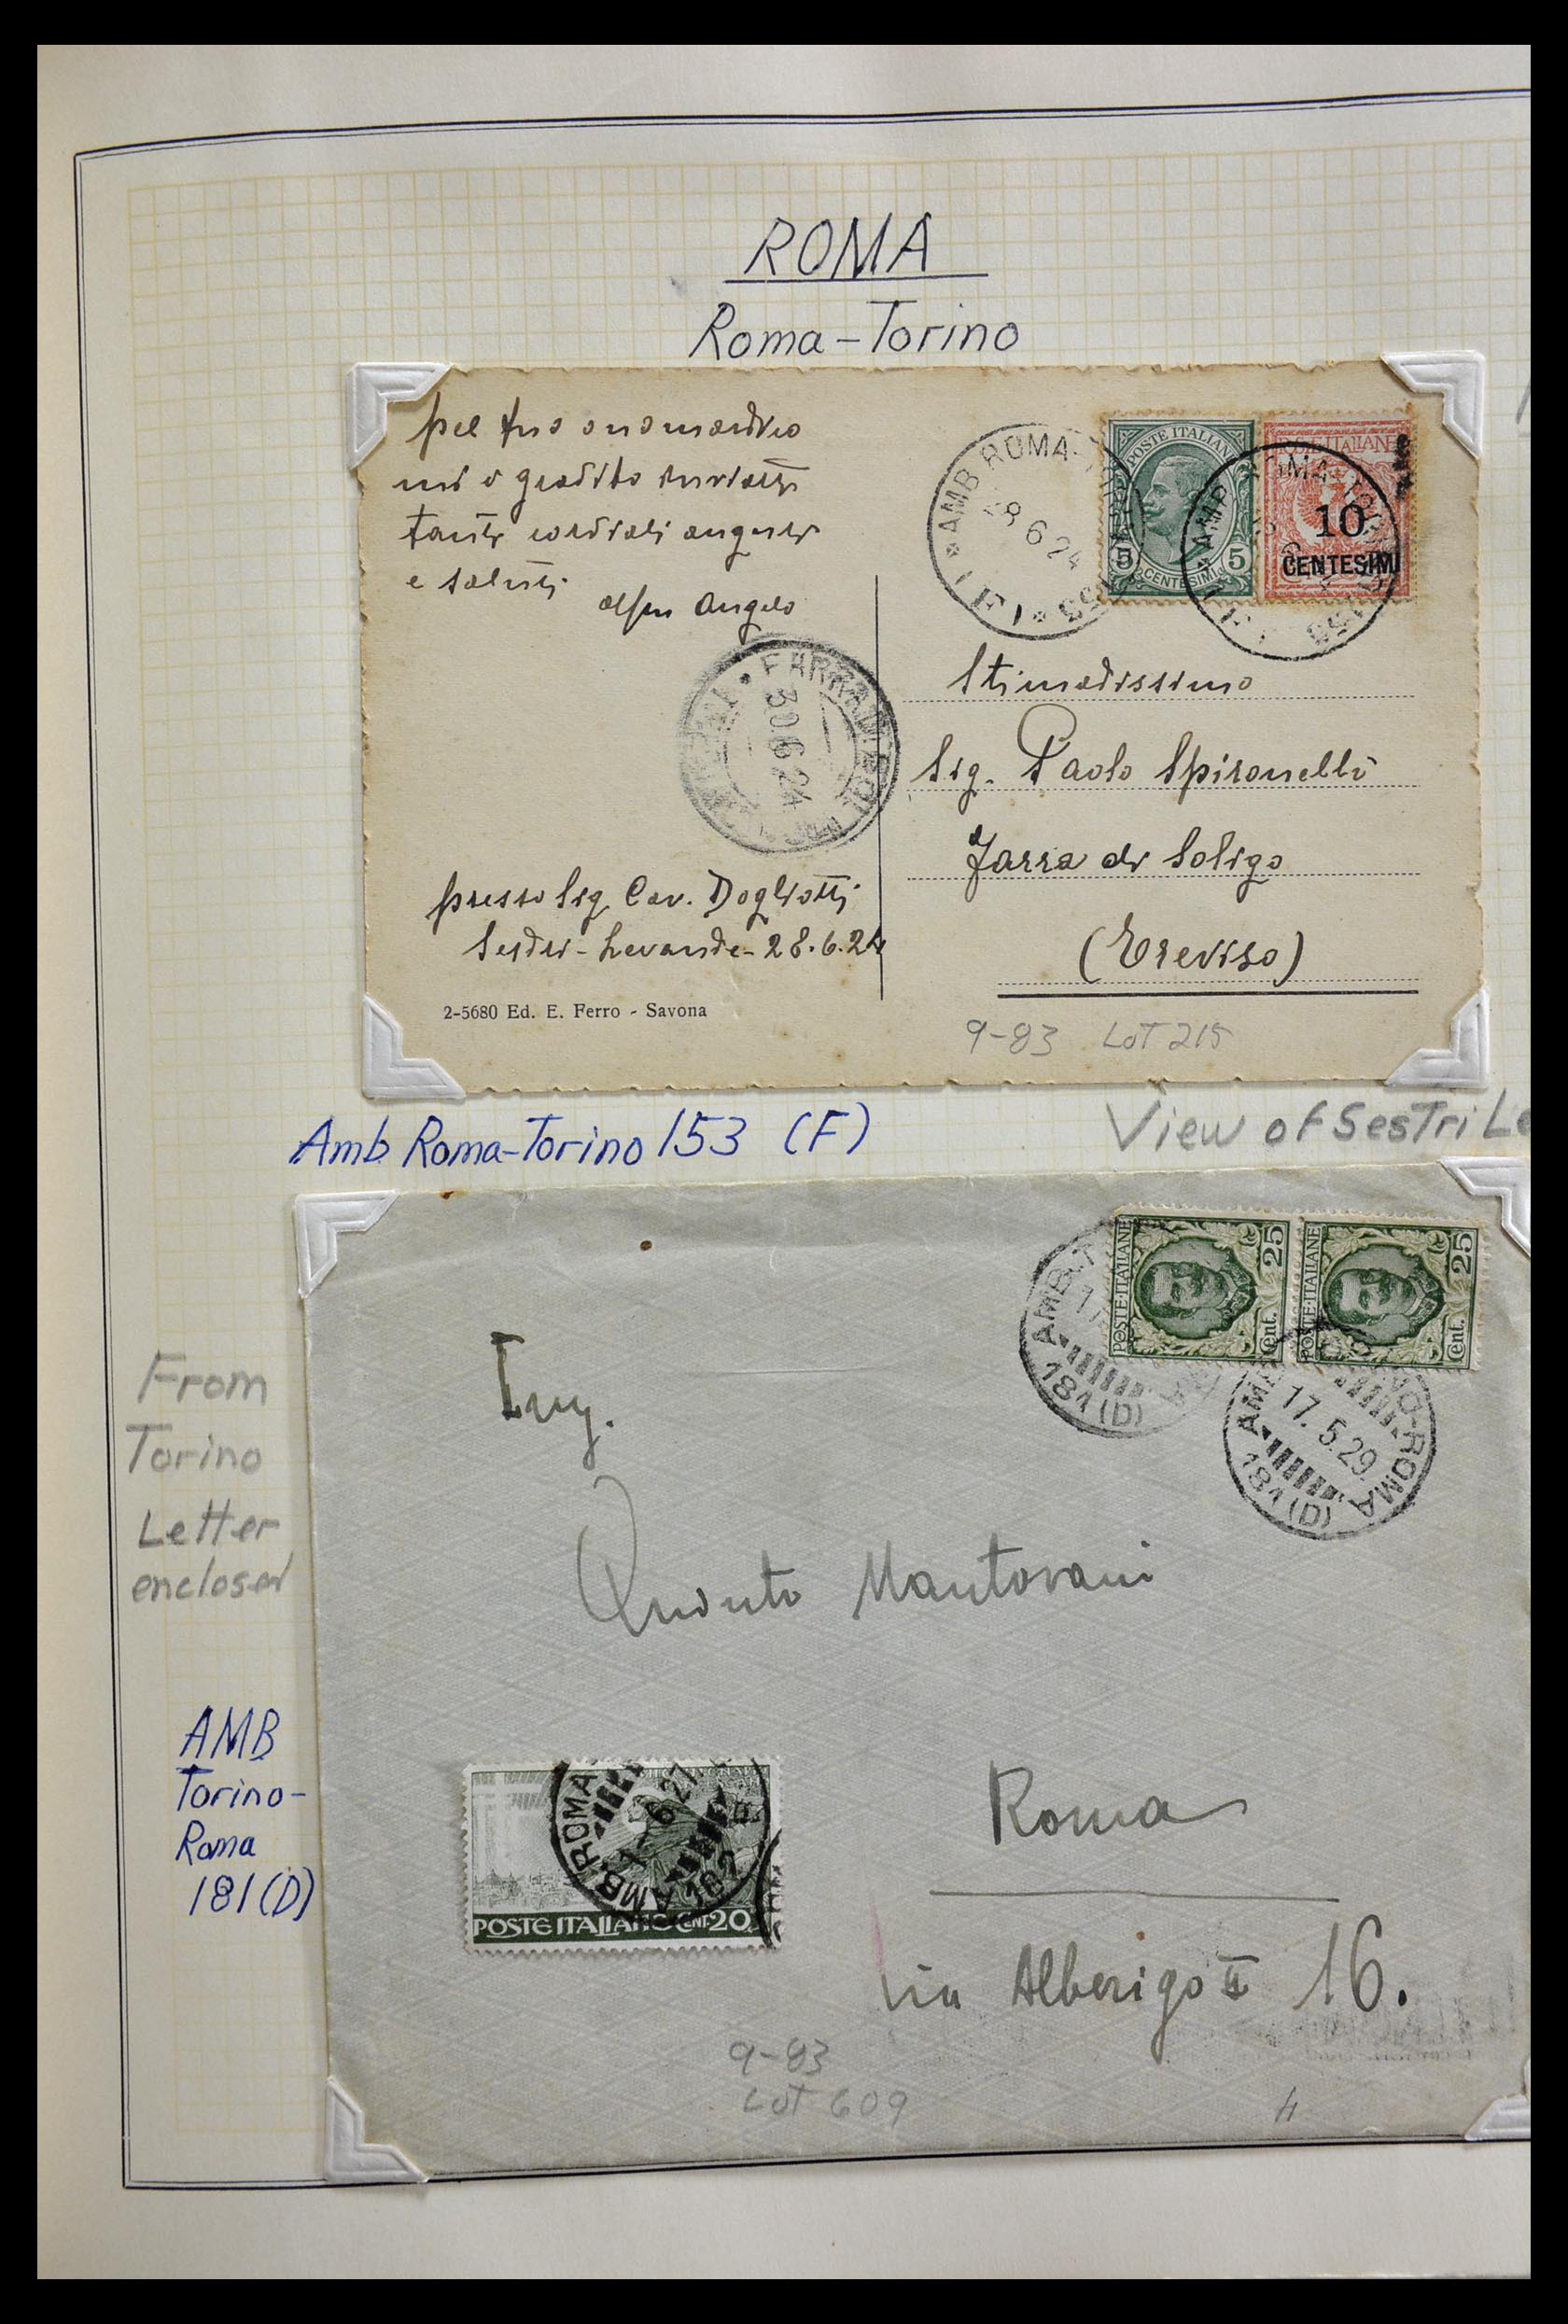 ROMA
Roma-Torino
pel suo onomastico
mio gradito inviargli
tanti cordiali auguri
e saluti
Angelo
presso Sig. Cav. Dogliotti
Sestri-Levante-28.6.24
2-5680 Ed. E. Ferro - Savona
30 6 24
AMB ROMA-
28 6 24
153
(F)
POSTE ITALIANE
5 5
CENTESIMI
POSTE ITALIANE
10
CENTESIMI
Stimadissimo
Sig. Paolo Spironelli
Farra di Soligo
(Treviso)
9-83 LOT 215
Amb Roma-Torino 153 (F)
View of SesTri Le
POSTE·ITALIANE
25
Cent.
POSTE·ITALIANE
25
Cent.
181 (D)
17. 5.29.
-ROMA
181 (D)
Ing.
Quinto Mantovani
Roma
Via Alberigo II 16.
From
Torino
Letter
enclosed
AMB
Torino-
Roma
181(D)
AMB.ROMA
1-6 27
182
POSTE ITALIANE CENT 20
9-83
LOT 609
4